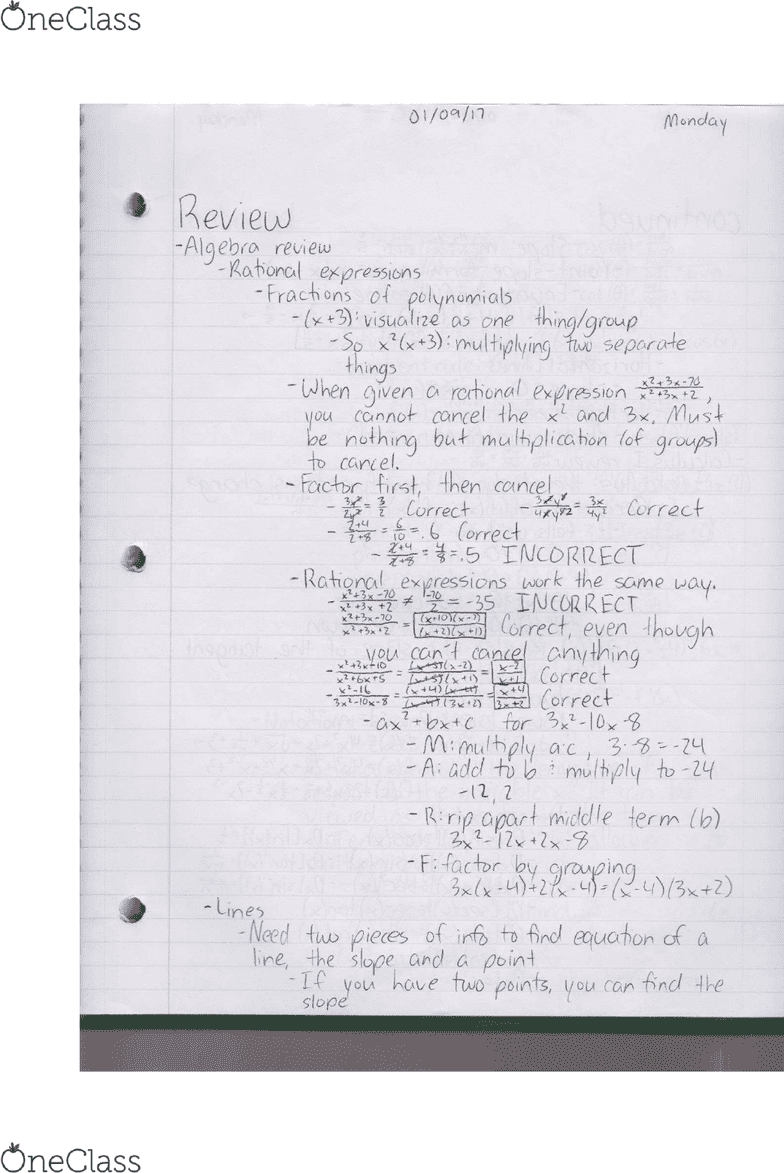 OneClass
01/09/17
Monday
Review
-Algebra review
-Rational expressions
-Fractions of polynomials
-(x+3): visualize as one thing/group
-So x²(x+3): multiplying two separate
things
-When given a rational expression (x²+3x-70)/(x²+3x+2),
you cannot cancel the x² and 3x. Must
be nothing but multiplication (of groups)
to cancel.
-Factor first, then cancel
- 3x²/2x² = 3/2 Correct - = 3x/4y² Correct
- 2+4/2+8 = 6/10 = .6 Correct
- 2+4/2+8 = 4/8 = .5 INCORRECT
-Rational expressions work the same way.
- x²+3x-70/x²+3x+2 ≠ -70/2 = -35 INCORRECT
x²+3x-70/x²+3x+2 = (x+10)(x-7)/(x+2)(x+1) Correct, even though
you can't cancel anything
- x²+3x-10/x²+6x+5 = (x+5)(x-2)/(x+5)(x+1) = x-2/x+1 Correct
- x²-16/3x²-10x-8 = (x+4)(x-4)/(x-4)(3x+2) = x+4/3x+2 Correct
-ax²+bx+c for 3x²-10x-8
-M: multiply a·c, 3·-8=-24
-A: add to b & multiply to -24
-12, 2
-R: rip apart middle term (b)
3x²-12x+2x-8
-F: factor by grouping
3x(x-4)+2(x-4)=(x-4)(3x+2)
-Lines
-Need two pieces of info to find equation of a
line, the slope and a point
-If you have two points, you can find the
slope
OneClass